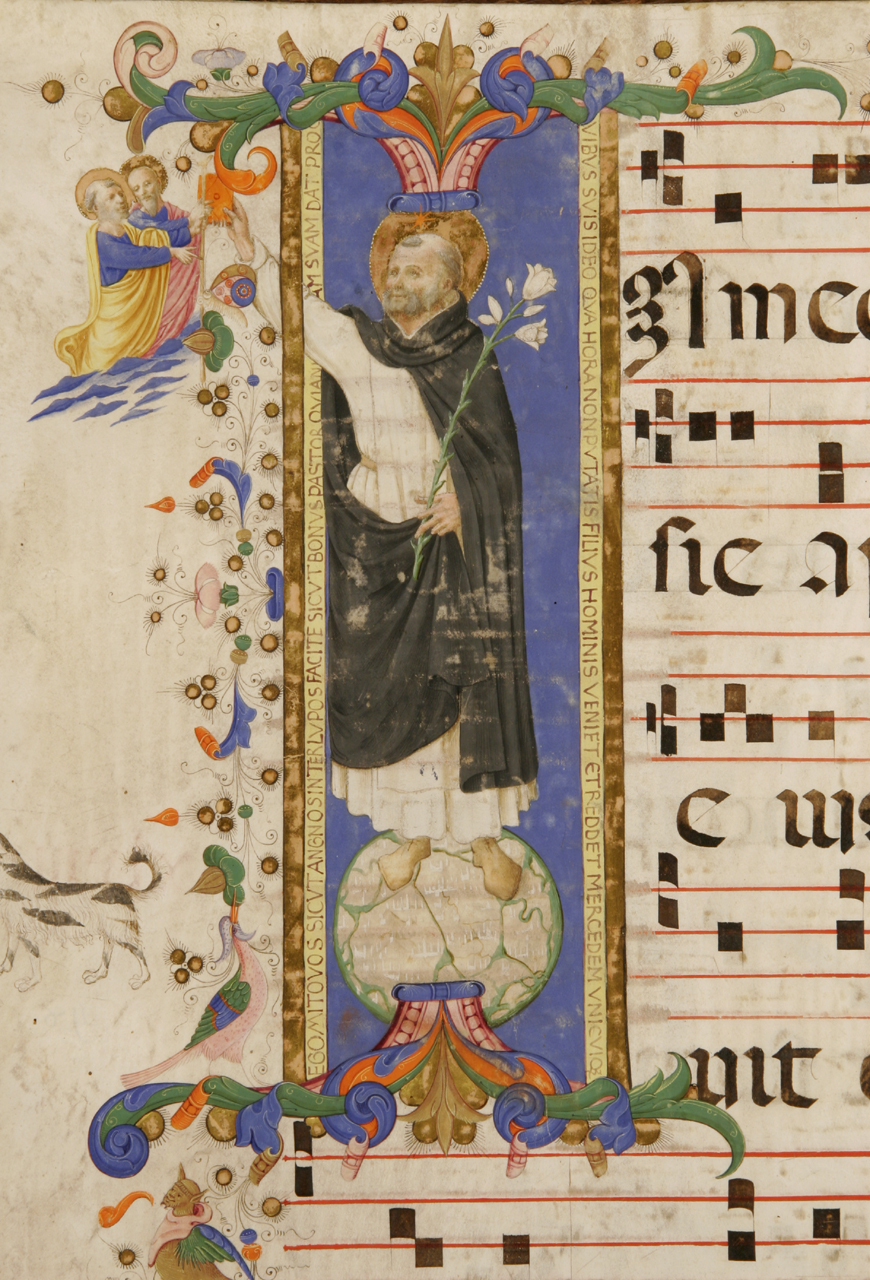 EGO MITO VOS SICVT ANGNOS INTER LVPOS FACITE SICVT BONVS PASTTOR QVI ANI AM SVAM DAT PRO
VIBVS SVIS IDEO QVA HORA NON PVTATIS FILIVS HOMINIS VENIET ET REDDET MERCEDEM VNICVIQ
N me
sie ap
e uis
uit